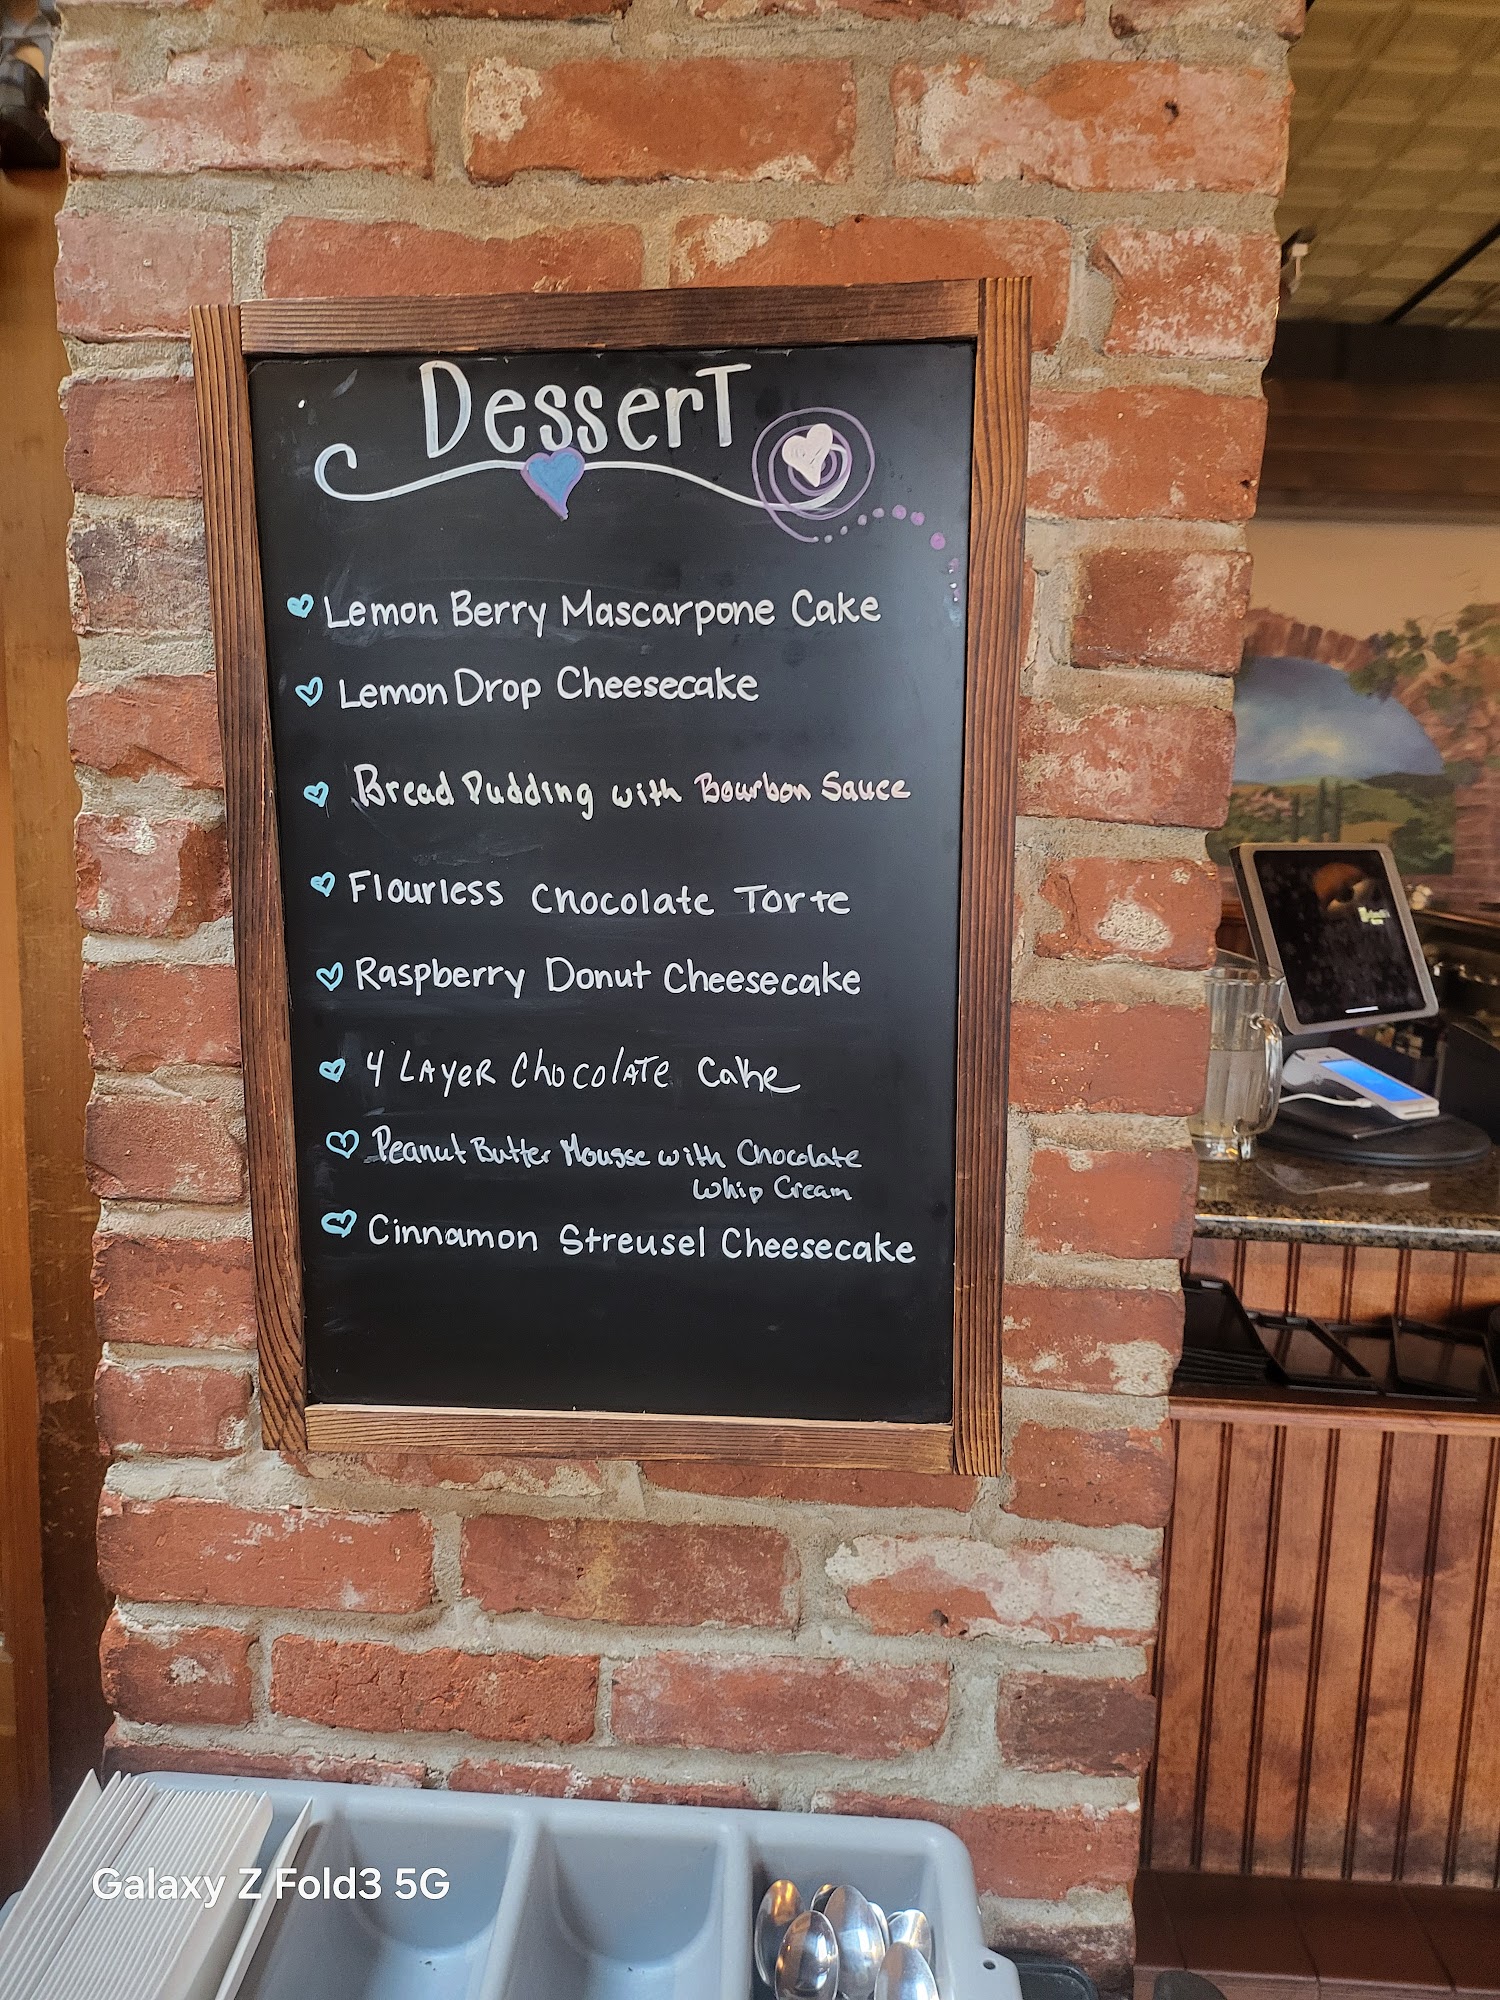 DesserT
Lemon Berry Mascarpone Cake
Lemon Drop Cheesecake
Bread Pudding with Bourbon Sauce
Flourless Chocolate Torte
Raspberry Donut Cheesecake
4 LAyeR ChocolATe Cake
Peanut Butter Mousse with Chocolate
Whip Cream
Cinnamon Streusel Cheesecake
Galaxy Z Fold3 5G